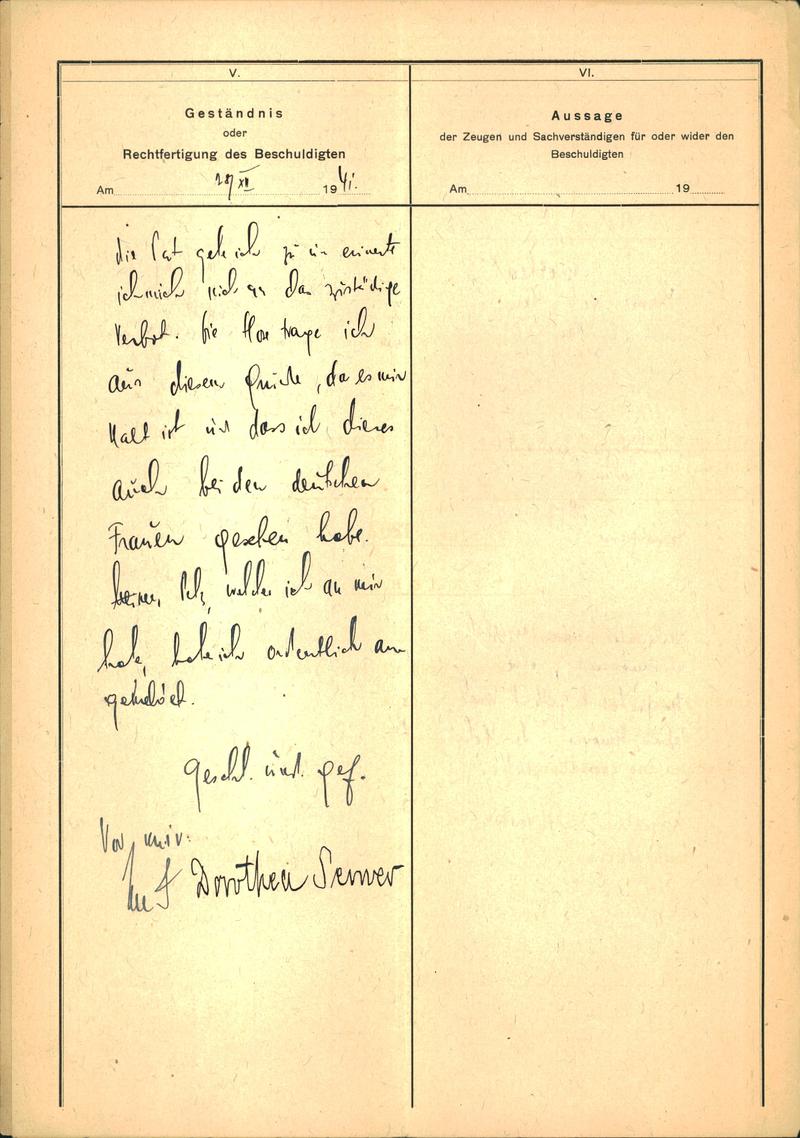 V.
Geständnis
oder
Rechtfertigung des Beschuldigten
Am 29/XII 1941.
VI.
Aussage
der Zeugen und Sachverständigen für oder wider den
Beschuldigten
Am 19
die Tat gebe ich zu un erinerte
ich mich nich an das zuständige
Verbot. Die Hose trage ich
aus diesem Grunde, da es mir
kalt ist und dass ich dieses
auch bei den deutschen
Frauen gesehen habe.
welche ich an mir
habe, habe ich ordentlich an
Geschl. und. gef.
Vor mir:
Dorothea